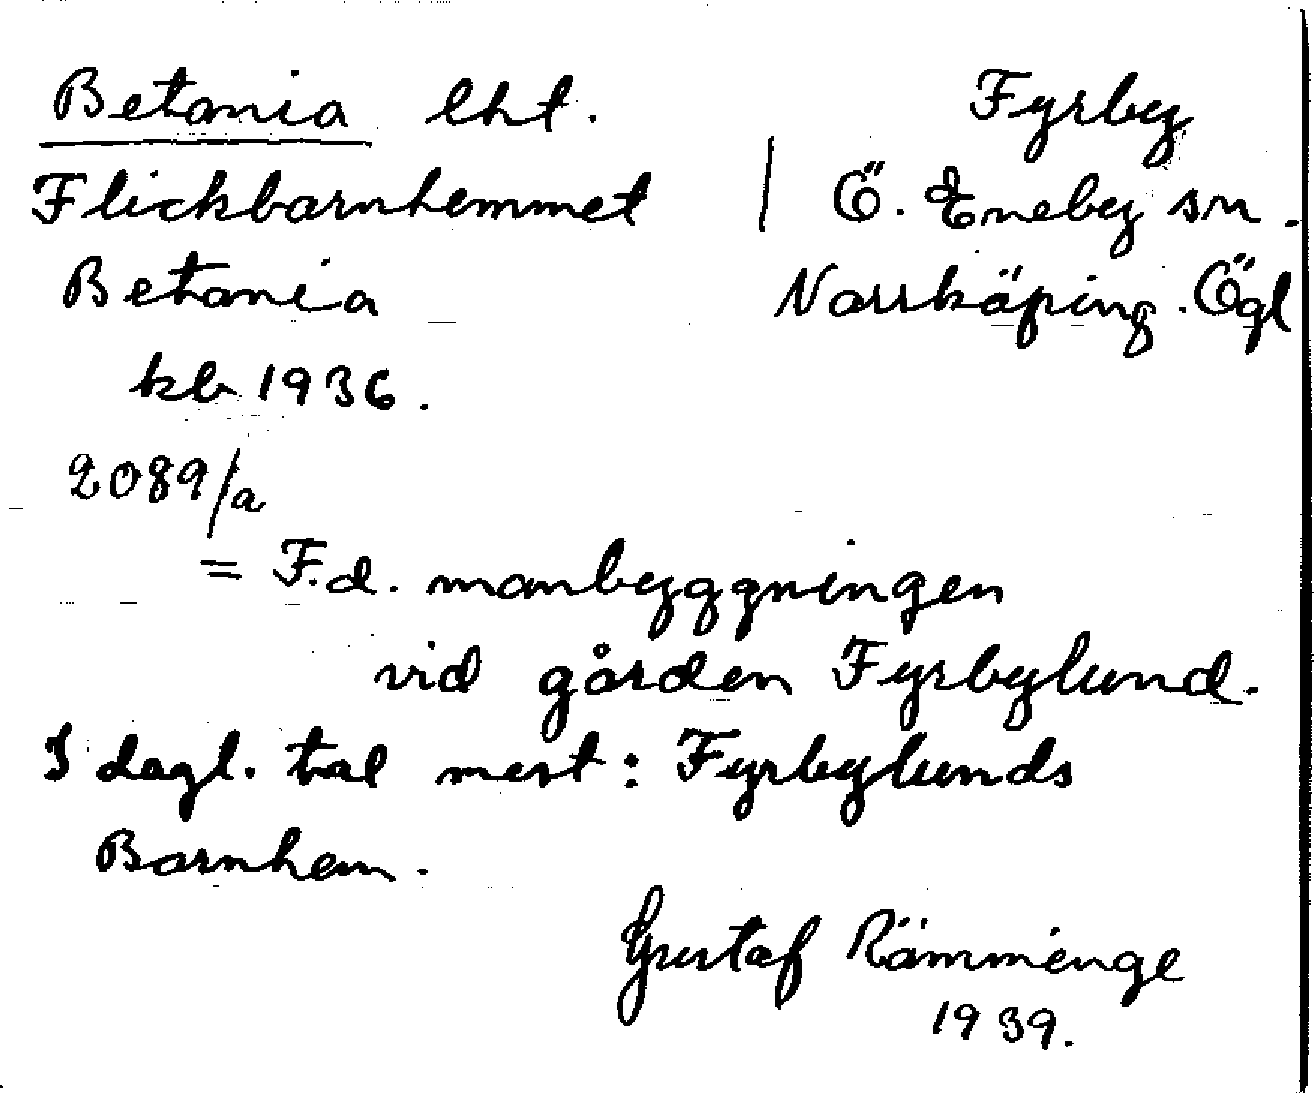 Betania lht.
Flickbarnhemmet
Betania
kb 1936.
Fyrby
Ö. Eneby sn.
Norrköping. Ögl
2089/a
= F.d. manbyggningen
vid gården Fyrbylund.
I dagl. tal mest: Fyrbylunds
Barnhem.
Gustaf Rämminge
1939.